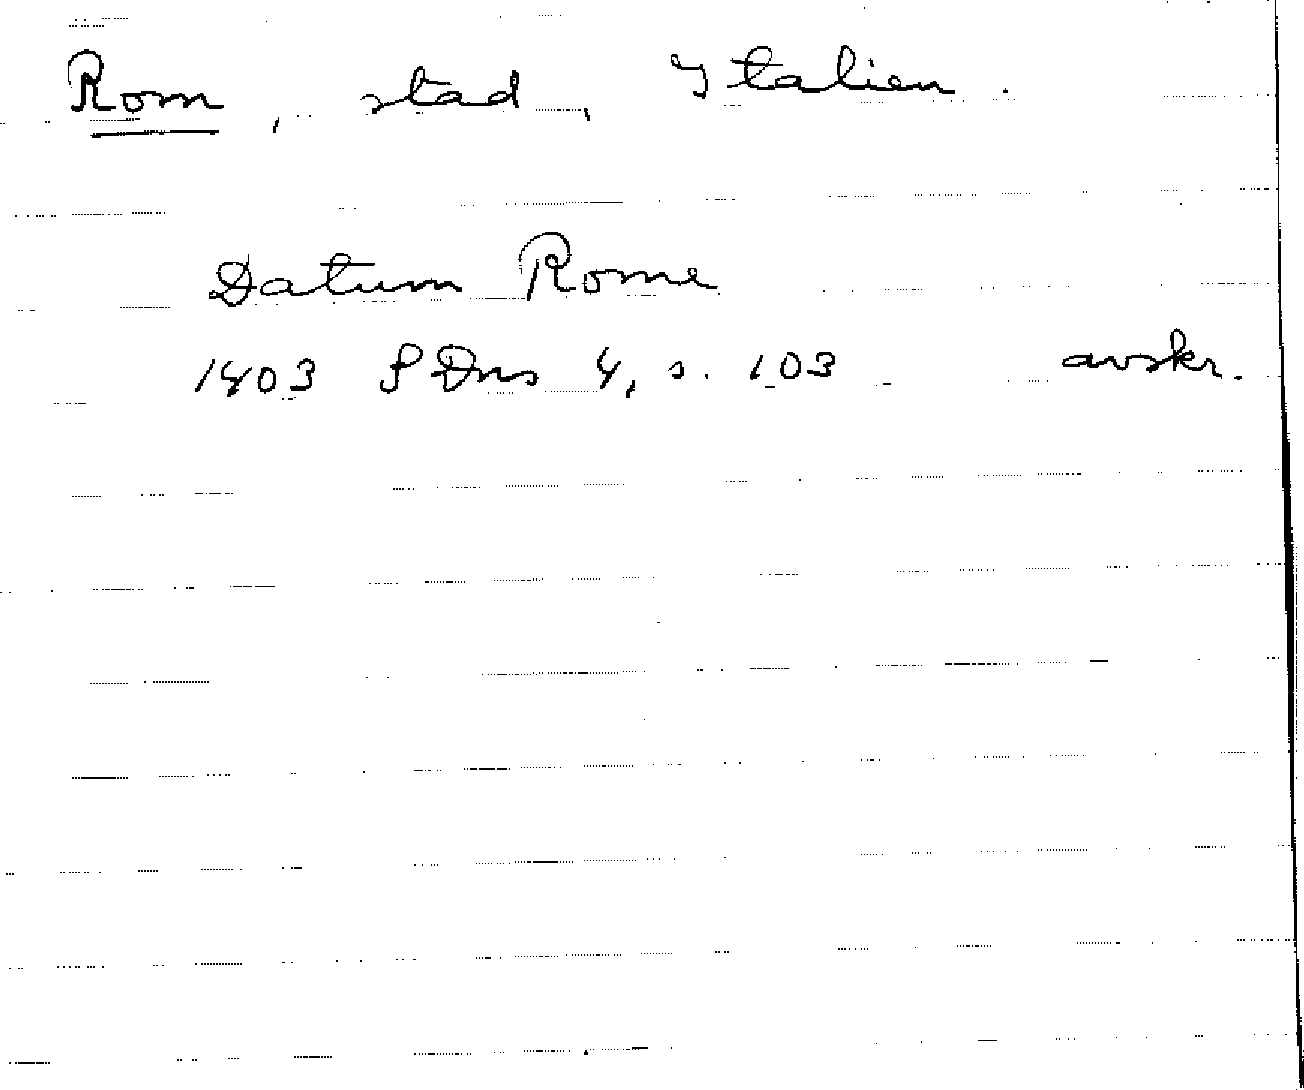 Rom, stad, Italien.
Datum Rome
1403 SDns 4, s. 103 avskr.